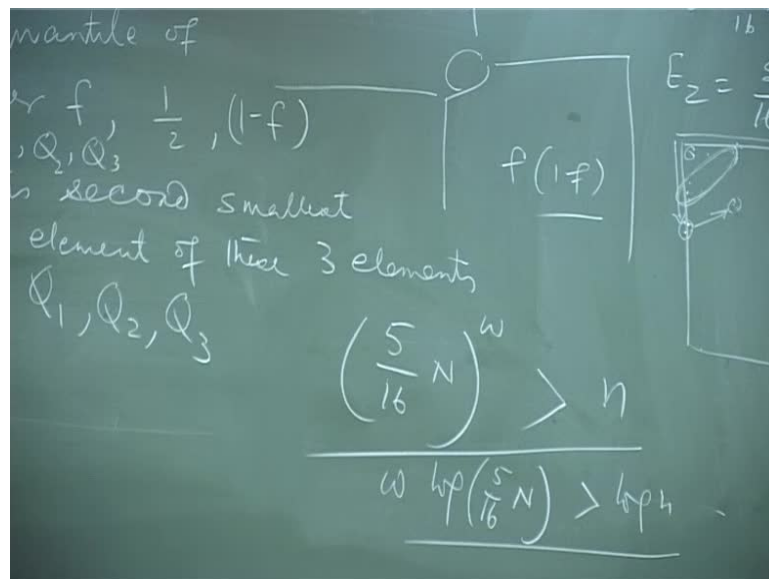 mantile of
f, 1/2, (1-f)
, Q2, Q3
second smallest
element of these 3 elements
Q1, Q2, Q3
f(1-f)
(5/16 N)^ω > n
ω log(5/16 N) > log n
16
E2 =